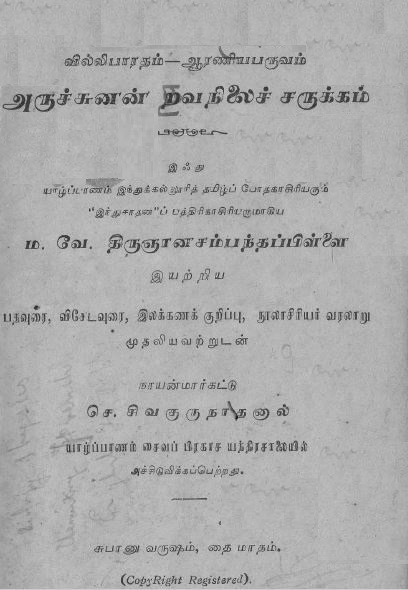 வில்லிபாரதம்—ஆரணியபருவம்
அருச்சுனன் றவநிலைச் சருக்கம்
இஃது
யாழ்ப்பாணம் இந்துக்கல்லூரித் தமிழ்ப் போதகாசிரியரும்
“இந்துசாதன”ப் பத்திரிகாசிரியருமாகிய
ம. வே. திருஞானசம்பந்தப்பிள்ளை
இயற்றிய
பதவுரை, விசேடவுரை, இலக்கணக் குறிப்பு, நூலாசிரியர் வரலாறு
முதலியவற்றுடன்
நாயன்மார்கட்டு
செ. சிவகுருநாதனால்
யாழ்ப்பாணம் சைவப் பிரகாச யந்திரசாலையில்
அச்சிடுவிக்கப்பெற்றது.
சுபானு வருஷம், தை மாதம்.
(CopyRight Registered).